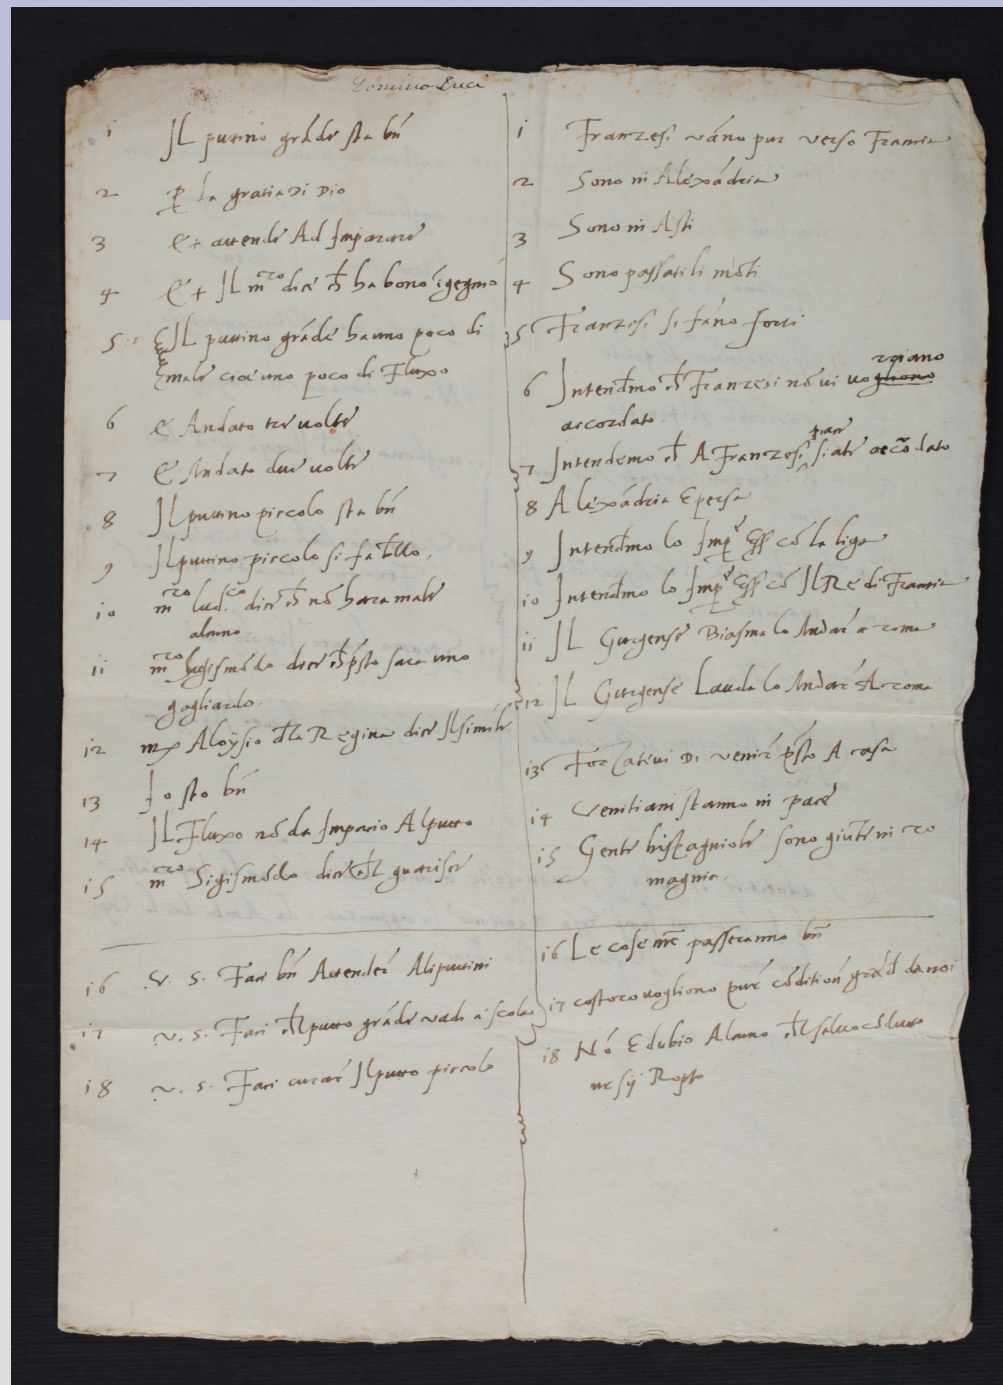 Domino Duci
1 Il puttino grāde sta bn̄
2 p̱ la gratia Di Dio
3 Et attende Ad Imparare
4 Et Il mro dice ch̄ ha bono īgegnio
5 Il puttino grāde ha uno poco di
male cioe uno poco di Fluxo
6 E Andato tre uolte
7 E Andato due uolte
8 Il puttino piccolo sta bn̄
9 Il puttino piccolo si fa bello.
10 mro lud.co dice ch̄ nō hara male
alcuno.
11 mro Sigismōdo dice ch̄ p̄sto sara uno
gagliardo.
12 Aloysio d̄la Regina dice Il simile
13 Io sto bn̄
14 Il Fluxo nō da Impacio Al putto
15 mro Sigismōdo dice ch̄l guarisce
16 .v. s. Faci bn̄ Attendere Ali puttini
17 v. s. Faci ch̄l putto grāde vadi a scola
18 v. s. Faci curare Il putto piccolo
1 Franzesi vāno pur verso Francia
2 Sono in Alexādria
3 Sono in Asti
4 Sono passati li mōti
5 Franzesi si fāno forti
6 Intendēmo ch̄ Franzesi nō ui uogliono
accordato.
7 Intendemo ch̄ A Franzesi siate accōdato
8 Alexādria E persa
9 Intendēmo lo Imp. Ess̄ cō la liga
10 Intendēmo lo Imp. Ess̄ cō Il Re di Francia
11 Il Gurgense Biasma lo Andare a roma
12 Il Gurgense Lauda lo Andare A roma
13 Forzativi Di venire p̄sto A casa
14 Venitiani stanno in pace
15 Gente hispagniole sono giūte in ro
magnia.
16 Le cose n̄re passeranno bn̄
17 costoro uogliono pure cōditioni grād da noi
18 Nō E dubio Alcuno ch̄l saluocōdutto
ne sij Rotto